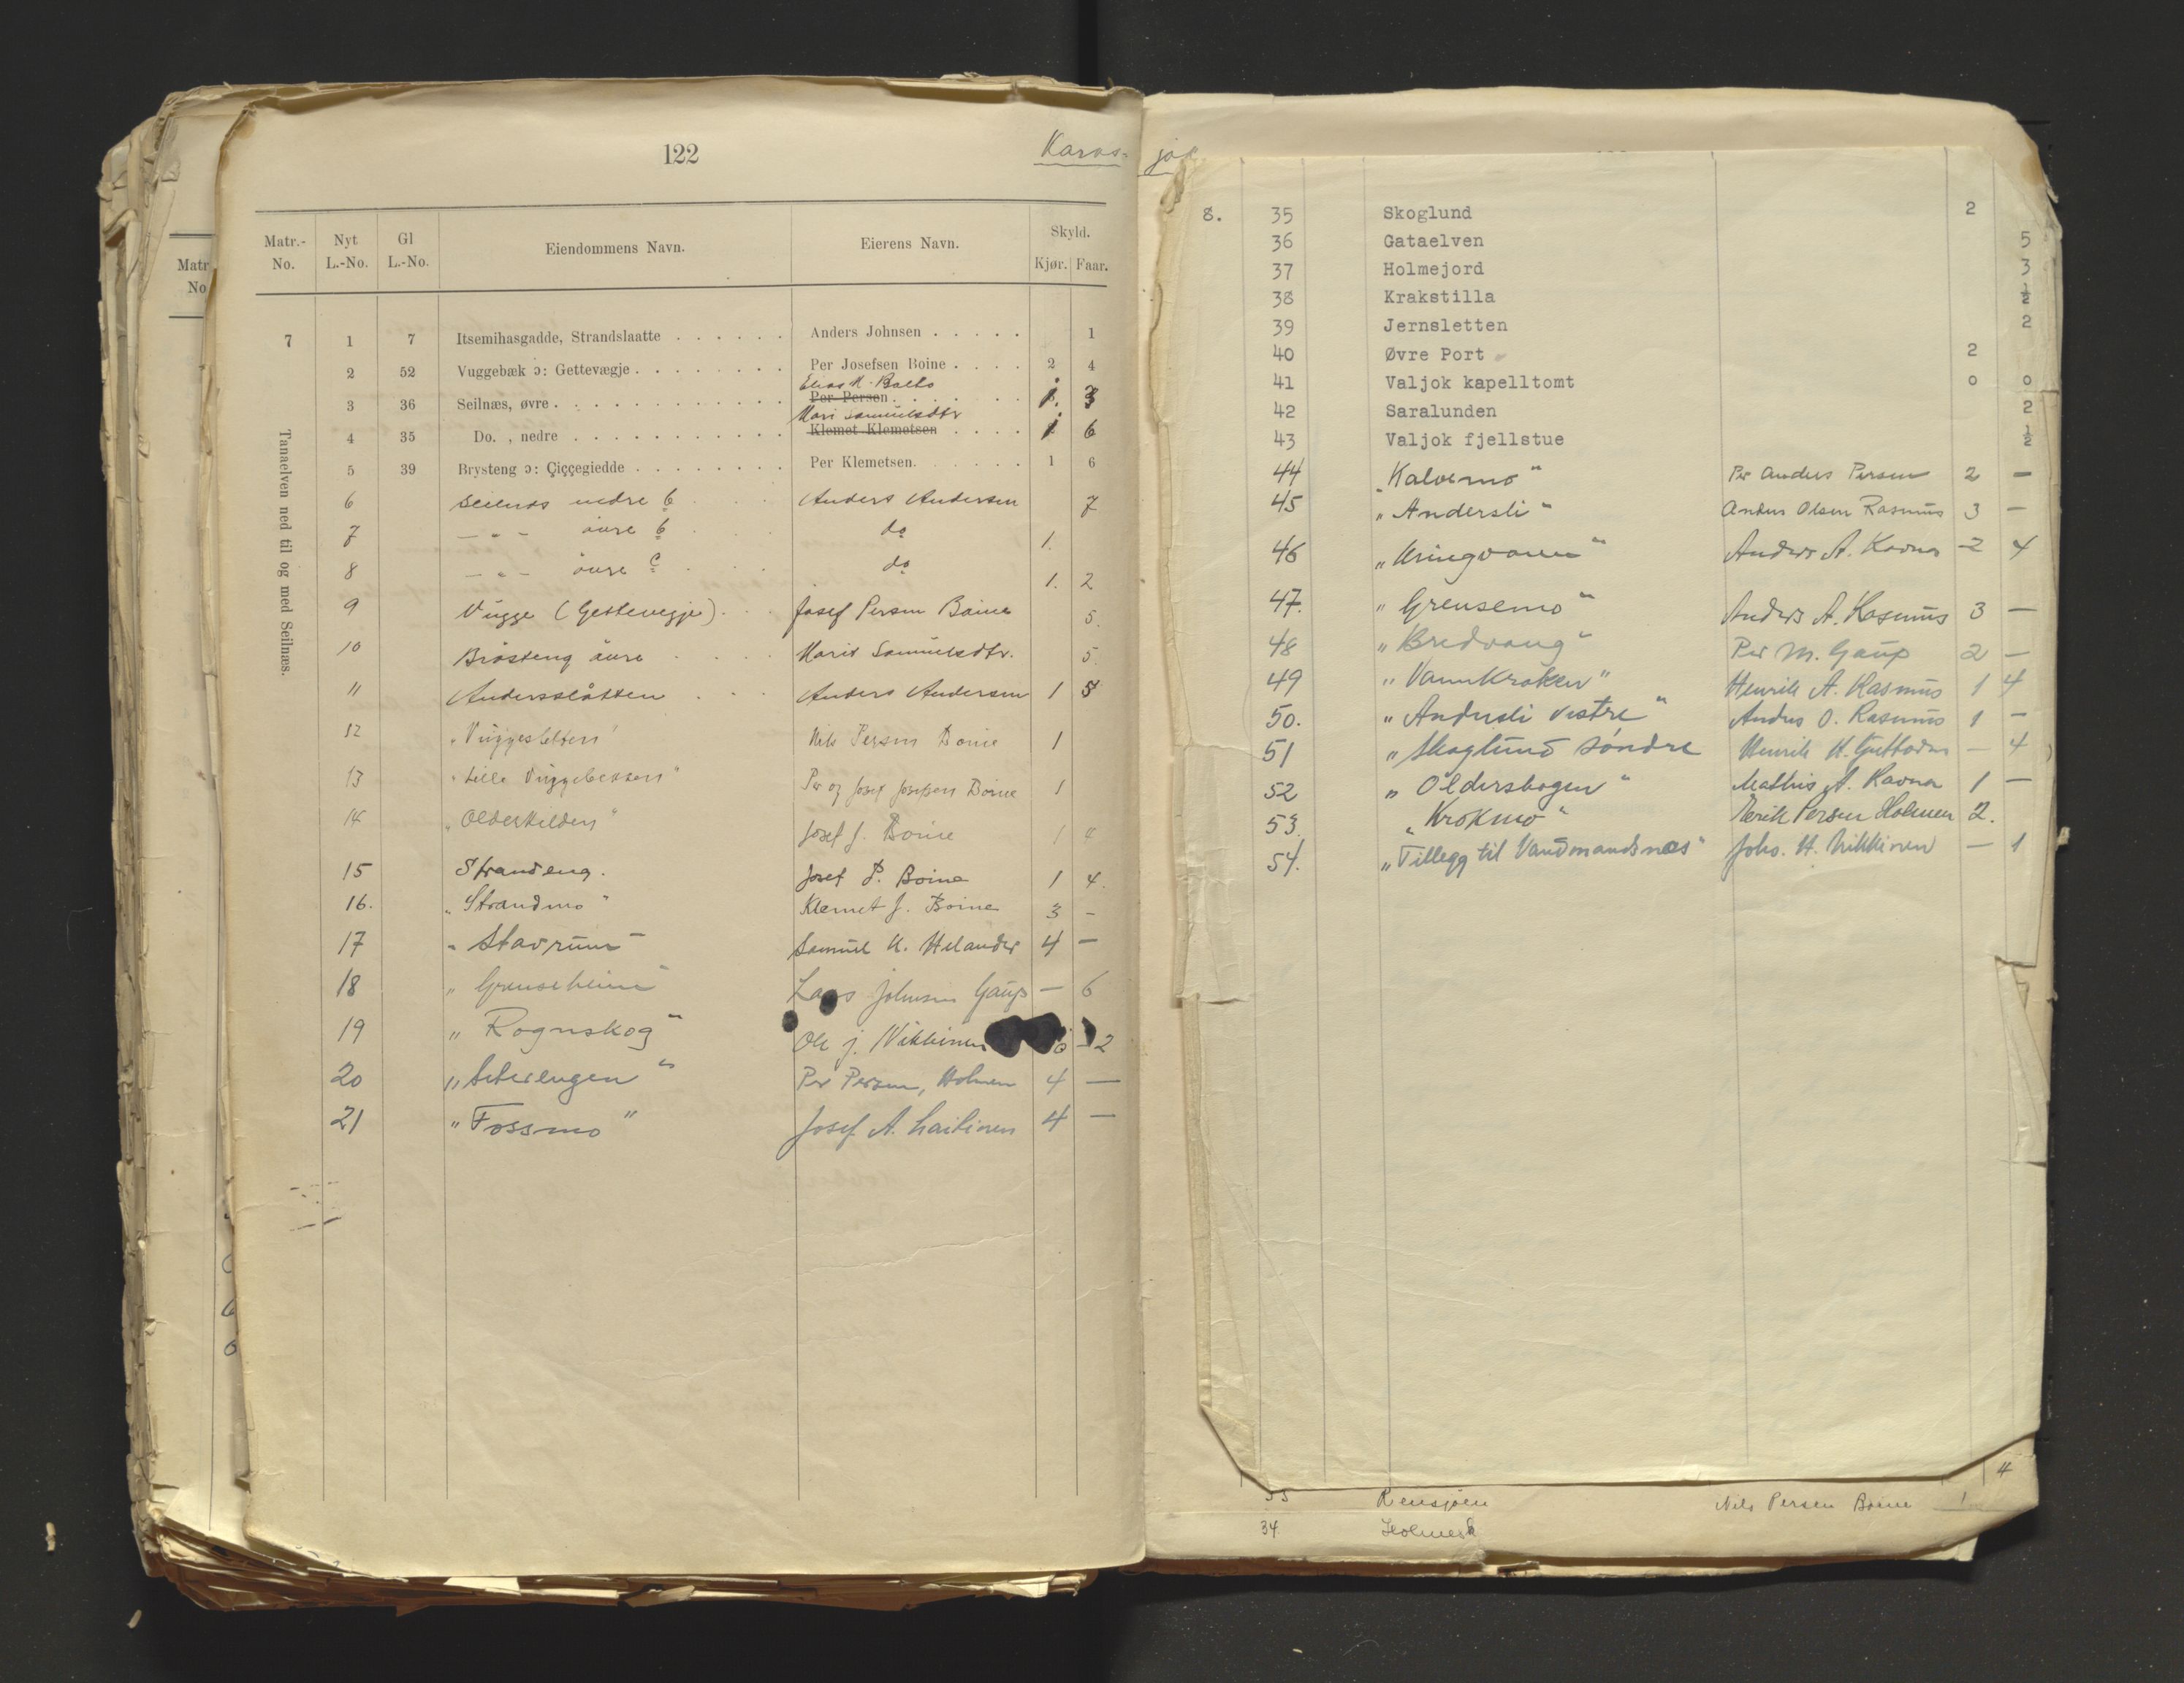 122
Karas-
jok
Matr.-No. Nyt L.-No. Gl L.-No. Eiendommens Navn. Eierens Navn. Skyld. Kjør. Faar.
Matr No
Tanaelven ned til og med Seilnæs.
7 1 7 Itsemihasgadde, Strandslaatte . . . . . . Anders Johnsen . . . . . 1
2 52 Vuggebæk ɔ: Gettevægje . . . . . . . . Per Josefsen Boine . . . . 2 4
Elias N. Balto
3 36 Seilnæs, øvre . . . . . . . . . . . . Per Persen . . . . . . 1. 3
Mari Samuelsdtr
4 35 Do. , nedre . . . . . . . . . . . Klemet Klemetsen . . . . 1 6
5 39 Brysteng ɔ: Çiççegiedde . . . . . . . . Per Klemetsen . . . . . . 1 6
6 Seilnæs nedre b Anders Andersen 7
7 — " — øvre b do 1.
8 — " — øvre c do 1. 2
9 Vugge (Gettevegje) Josef Persen Boine 5.
10 Brøsteng øvre Marit Samuelsdtr. 5
11 Andersslåtten Anders Andersen 1 5
12 "Vuggesletten" Nils Persen Boine 1
13 "Lille Vuggebekken" Per og Josef Josefsen Boine 1
14 "Olderkilden" Josef J. Boine 1 4
15 Strandeng. Josef P. Boine 1 4.
16. "Strandmo" Klemet J. Boine 3 -
17 "Stavrum" Samuel K. Helander 4 —
18 "Grenseheim" Lars Johnsen Gaup — 6
19 "Rognskog" Ole J. Nikkinen 2
20 "Seterengen" Per Persen, Holmen 4 —
21 "Fossmo" Josef A. Laitinen 4 —
8. 35 Skoglund 2
36 Gataelven 5
37 Holmejord 3
38 Krakstilla ½
39 Jernsletten 2
40 Øvre Port 2
41 Valjok kapelltomt 0 0
42 Saralunden 2
43 Valjok fjellstue ½
44 "Kalvemo" Per Anders Persen 2 —
45 "Andersli" Anders Olsen Rasmus 3 —
46 "Kringvann" Anders A. Ravna 2 4
47. "Grensemo" Anders A. Rasmus 3 —
48 "Bredvang" Per M. Gaup 2 —
49 "Vannkroken" Henrik A. Rasmus 1 4
50. "Andersli vestre" Anders O. Rasmus 1 —
51 "Skoglund søndre Henrik H. Guttorm — 4
52 "Olderskogen" Mathis A. Ravna 1 —
53. "Krokmo" Henrik Persen Holmen 2.
54. "Tillegg til Vandmandsnæs" Johs. H. Nikkinen — 1
4
33 Rensjøen Nils Persen Boine 1
34 Holmesk